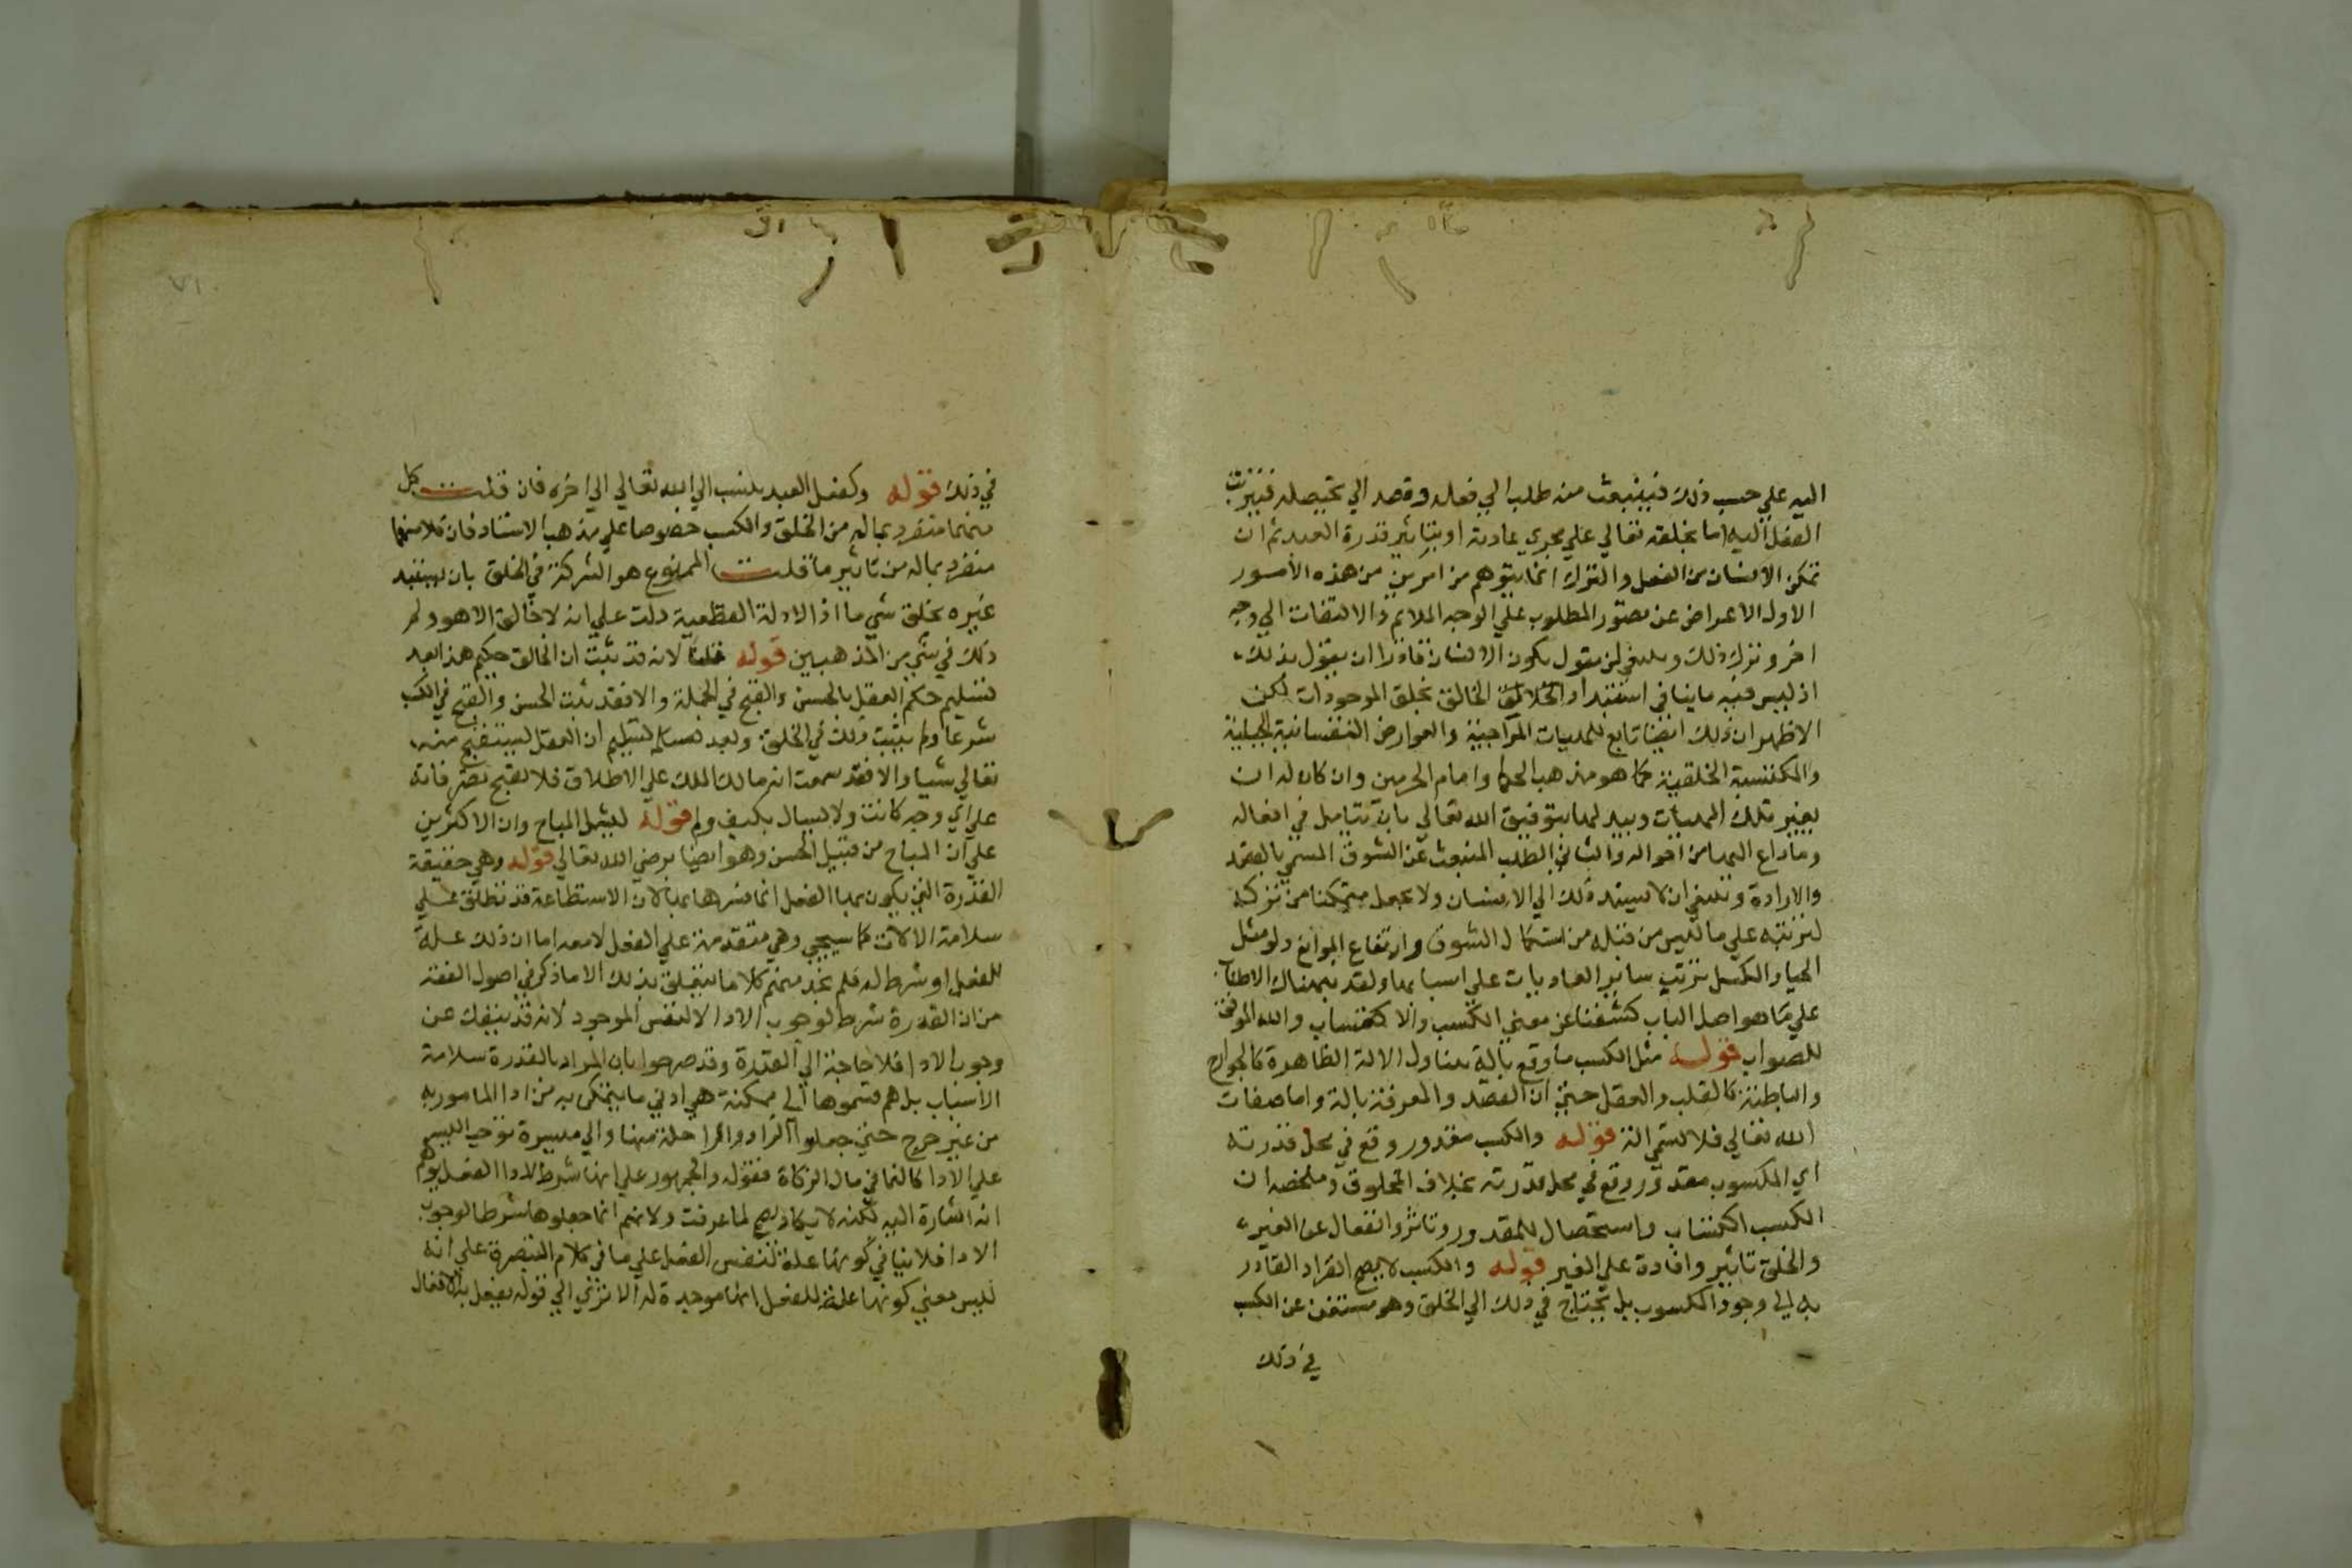 اليه علي حسب ذلك فينبعث منه طلب الي فعله وقصد الي تحصيله فيترتب
الفعل اليه اما بخلقه تعالي علي مجري عادته او بتاثير قدرة العبد ثم ان
تمكن الانسان من الفعل والترك انما يتوهم من امرين من هذه الأمور
الاول الاعراض عن تصور المطلوب علي الوجه الملائم والالتفات الي وجه
اخر وترك ذلك وينبغي لمن يقول بكون الانسان قادرا ان يقول بذلك
اذ ليس فيه ما ينافي استبداد الخالق بخلق الموجودات لكن
الاظهر ان ذلك ايضا تابع للهيات المزاجية والعوارض النفسانية الجبلية
والمكتسبة الخلقية كما هو مذهب الحكما وامام الحرمين وان كان له ان
يغير تلك الهيأت ويبدلها بتوفيق الله تعالي بان يتامل في افعاله
وما داع اليها من احواله والثاني الطلب المنبعث عن الشوق المسمي بالقصد
والارادة وينبغي ان لا يسند ذلك الي الانسان ولا يجعل متمكنا من تركه
لترتبه علي ما ليس من قبله من استكمال الشوق وارتفاع الموانع ولو مثل
الحيا والكسل ترتب ساير العاديات علي اسبابها ولقد نبهناك
علي ما هو اصل الباب كشفنا عن معني الكسب والاكتساب والله الموفق
للصواب قوله مثل الكسب ما وقع بالة يتناول الالة الظاهرة كالجوارح
والباطنة كالقلب والعقل حتي ان القصد والمعرفة بالة واما صفات
الله تعالي فلا تسمي الة قوله والكسب مقدور وقع في محل قدرته
اي المكسوب مقدور وقع في محل قدرته بخلاف المخلوق وملخصه ان
الكسب اكتساب واستحصال للمقدور وتاثر وانفعال عن الغير
والخلق تاثير وافادة علي الغير قوله والكسب لا يصح انفراد القادر
به اي وجود المكسوب بل يحتاج في ذلك الي الخلق وهو مستغن عن الكسب
في ذلك
في ذلك قوله وكفعل العبد ينسب الي الله تعالي الي اخره فان قلت كل
منهما منفرد بماله من الخلق والكسب خصوصا علي مذهب الاستاد فان كلا منهما
منفرد بماله من تاثير ما قلت الممنوع هو الشركة في الخلق بان يستبد
غيره بخلق شي ما اذ الادلة القطعية دلت علي انه لا خالق الا هو ولم
ذلك في شي من المذهبين قوله قلنا لانه قد ثبت ان الخالق حكيم هذا بعد
تسليم حكم العقل بالحسن والقبح في الجملة والا فقد ثبت الحسن والقبح في الكسب
شرعا ولم يثبت ذلك في الخلق وبعد تسليم ان العقل يستقبح منه
تعالي شيا والا فقد سمعت انه مالك الملك علي الاطلاق فلا يقبح تصرفاته
علي اي وجه كانت ولا يسال بكيف ولم قوله ليشمل المباح وان الاكثرين
علي ان المباح من قبيل الحسن وهو ايضا برضي الله تعالي قوله وهي حقيقة
القدرة التي يكون بها الفعل انما فسرها بها لان الاستطاعة قد تطلق علي
سلامة الالات كما سيجي وهي متقدمة علي الفعل لا معه اما ان ذلك علة
للفعل او شرط له فلم نجد منهم كلاما يتعلق بذلك الا ما ذكر في اصول الفقه
من ان القدرة شرط لوجوب الادا لا لنفس الموجود لانه قد ينفك عن
وجوب الادا فلا حاجة الي القدرة وقد صرحوا بان المراد بالقدرة سلامة
الاسباب بل هم قسموها الي ممكنة هي ادني ما يتمكن به من ادا المامور به
من غير حرج حتي جعلوا الزاد والراحلة منها والي ميسرة توجب اليسر
علي الادا كالنما في مال الزكاة فقوله والجمهور علي انها شرط لادا الفعل يوهم
انه اشارة اليه لكنه لا يكاد يصح لما عرفت ولانهم انما جعلوها شرطا لوجوب
الادا فلا ينافي كونها علة لنفس الفعل علي ما في كلام التبصرة علي انه
ليس معني كونها علة للفعل انها موجدة له الا تري الي قوله يفعل به الافعال